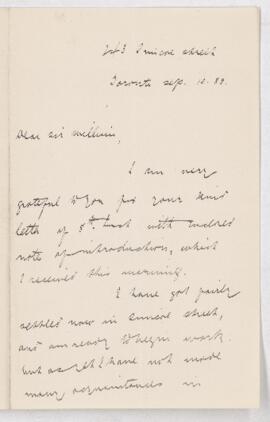 243 Simcoe street
Toronto Sep. 10. 89.
Dear Sir William,
I am very
grateful to you for your kind
letter of 8th. inst with
note of introduction, which
I received this morning.
I have got fairly
settled now in Simcoe street,
and am ready to begin work.
but as yet I have not made
many acquaintances in